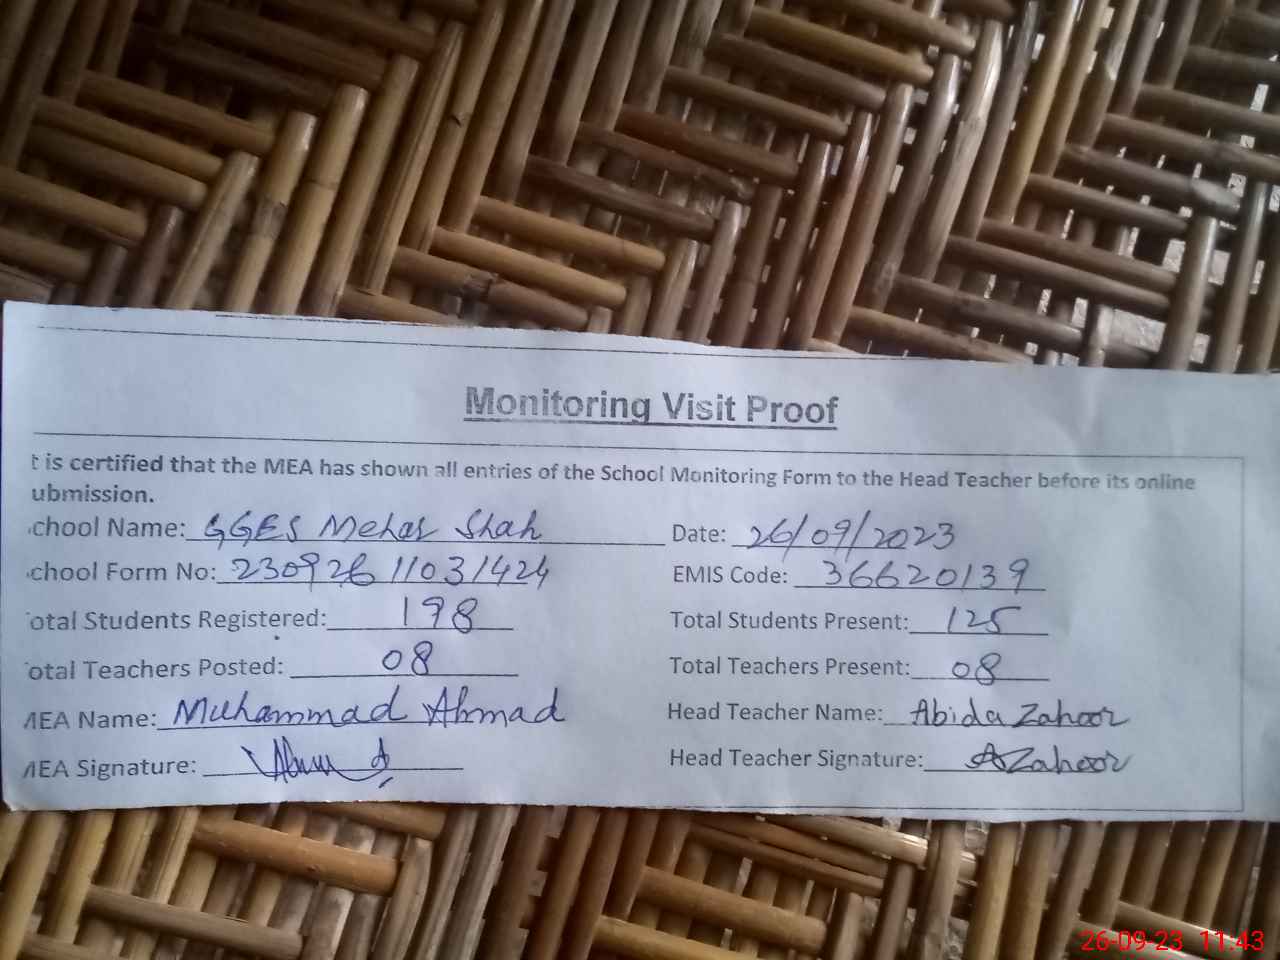 Monitoring Visit Proof
t is certified that the MEA has shown all entries of the School Monitoring Form to the Head Teacher before its online
ubmission.
chool Name: GGES Mehar Shah Date: 26/09/2023
chool Form No: 230926 11031424 EMIS Code: 36620139
otal Students Registered: 198 Total Students Present: 125
otal Teachers Posted: 08 Total Teachers Present: 08
MEA Name: Muhammad Ahmad Head Teacher Name: Abida Zahoor
MEA Signature: Head Teacher Signature: AZahoor
26-09-23 11:43